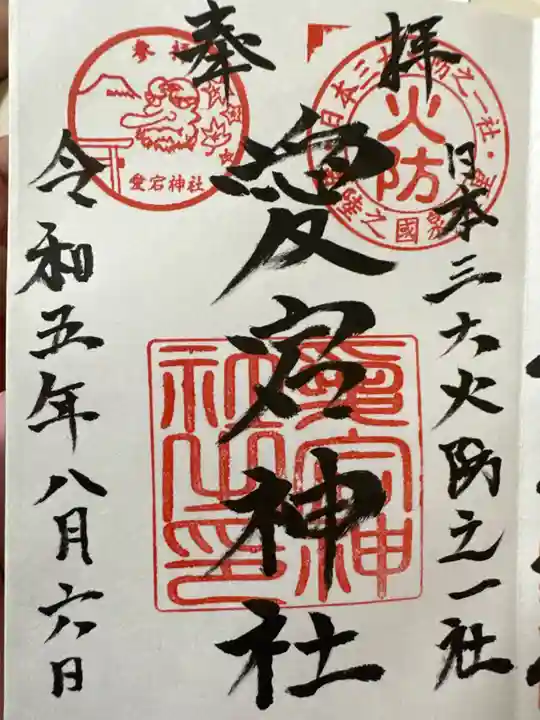 奉拝
日本三大火防之一社
愛宕神社
令和五年八月六日
火防
日本三大火防之一社・
常陸之國
参拝
愛宕神社
愛宕神社之印